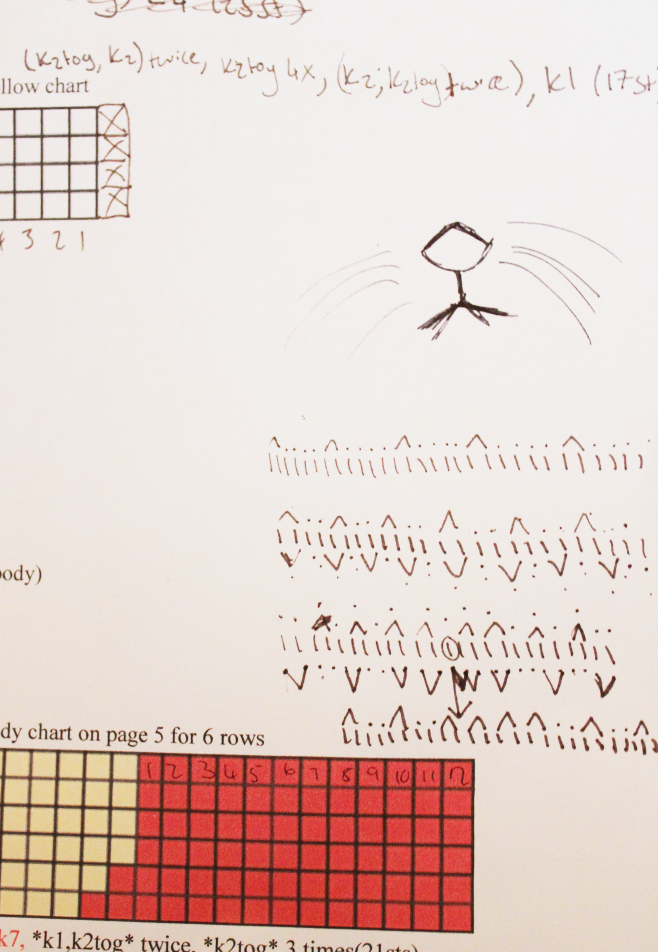 (k2tog, k2) twice, k2tog 4x, (k2, k2tog) twice), k1 (17st
llow chart
3 2 1
ody)
dy chart on page 5 for 6 rows
1 2 3 4 5 6 7 8 9 10 11 12
k7, *k1,k2tog* twice, *k2tog* 3 times(21sts)